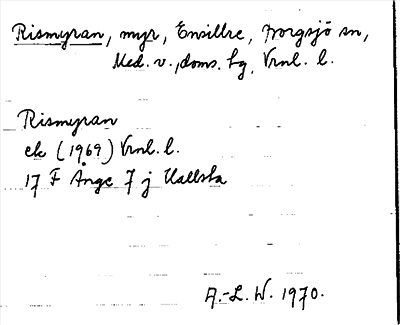 Rismyran, myr, Ensillre, Borgsjö sn,
Med. v., doms. hg, Vrnl. l.
Rismyran
ek (1969) Vrnl. l.
17 F Ånge 7 j Hallsta
A.-L. W. 1970.